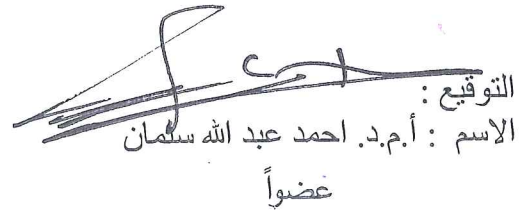 التوقيع :
الاسم : أ.م.د. احمد عبد الله سلمان
عضواً